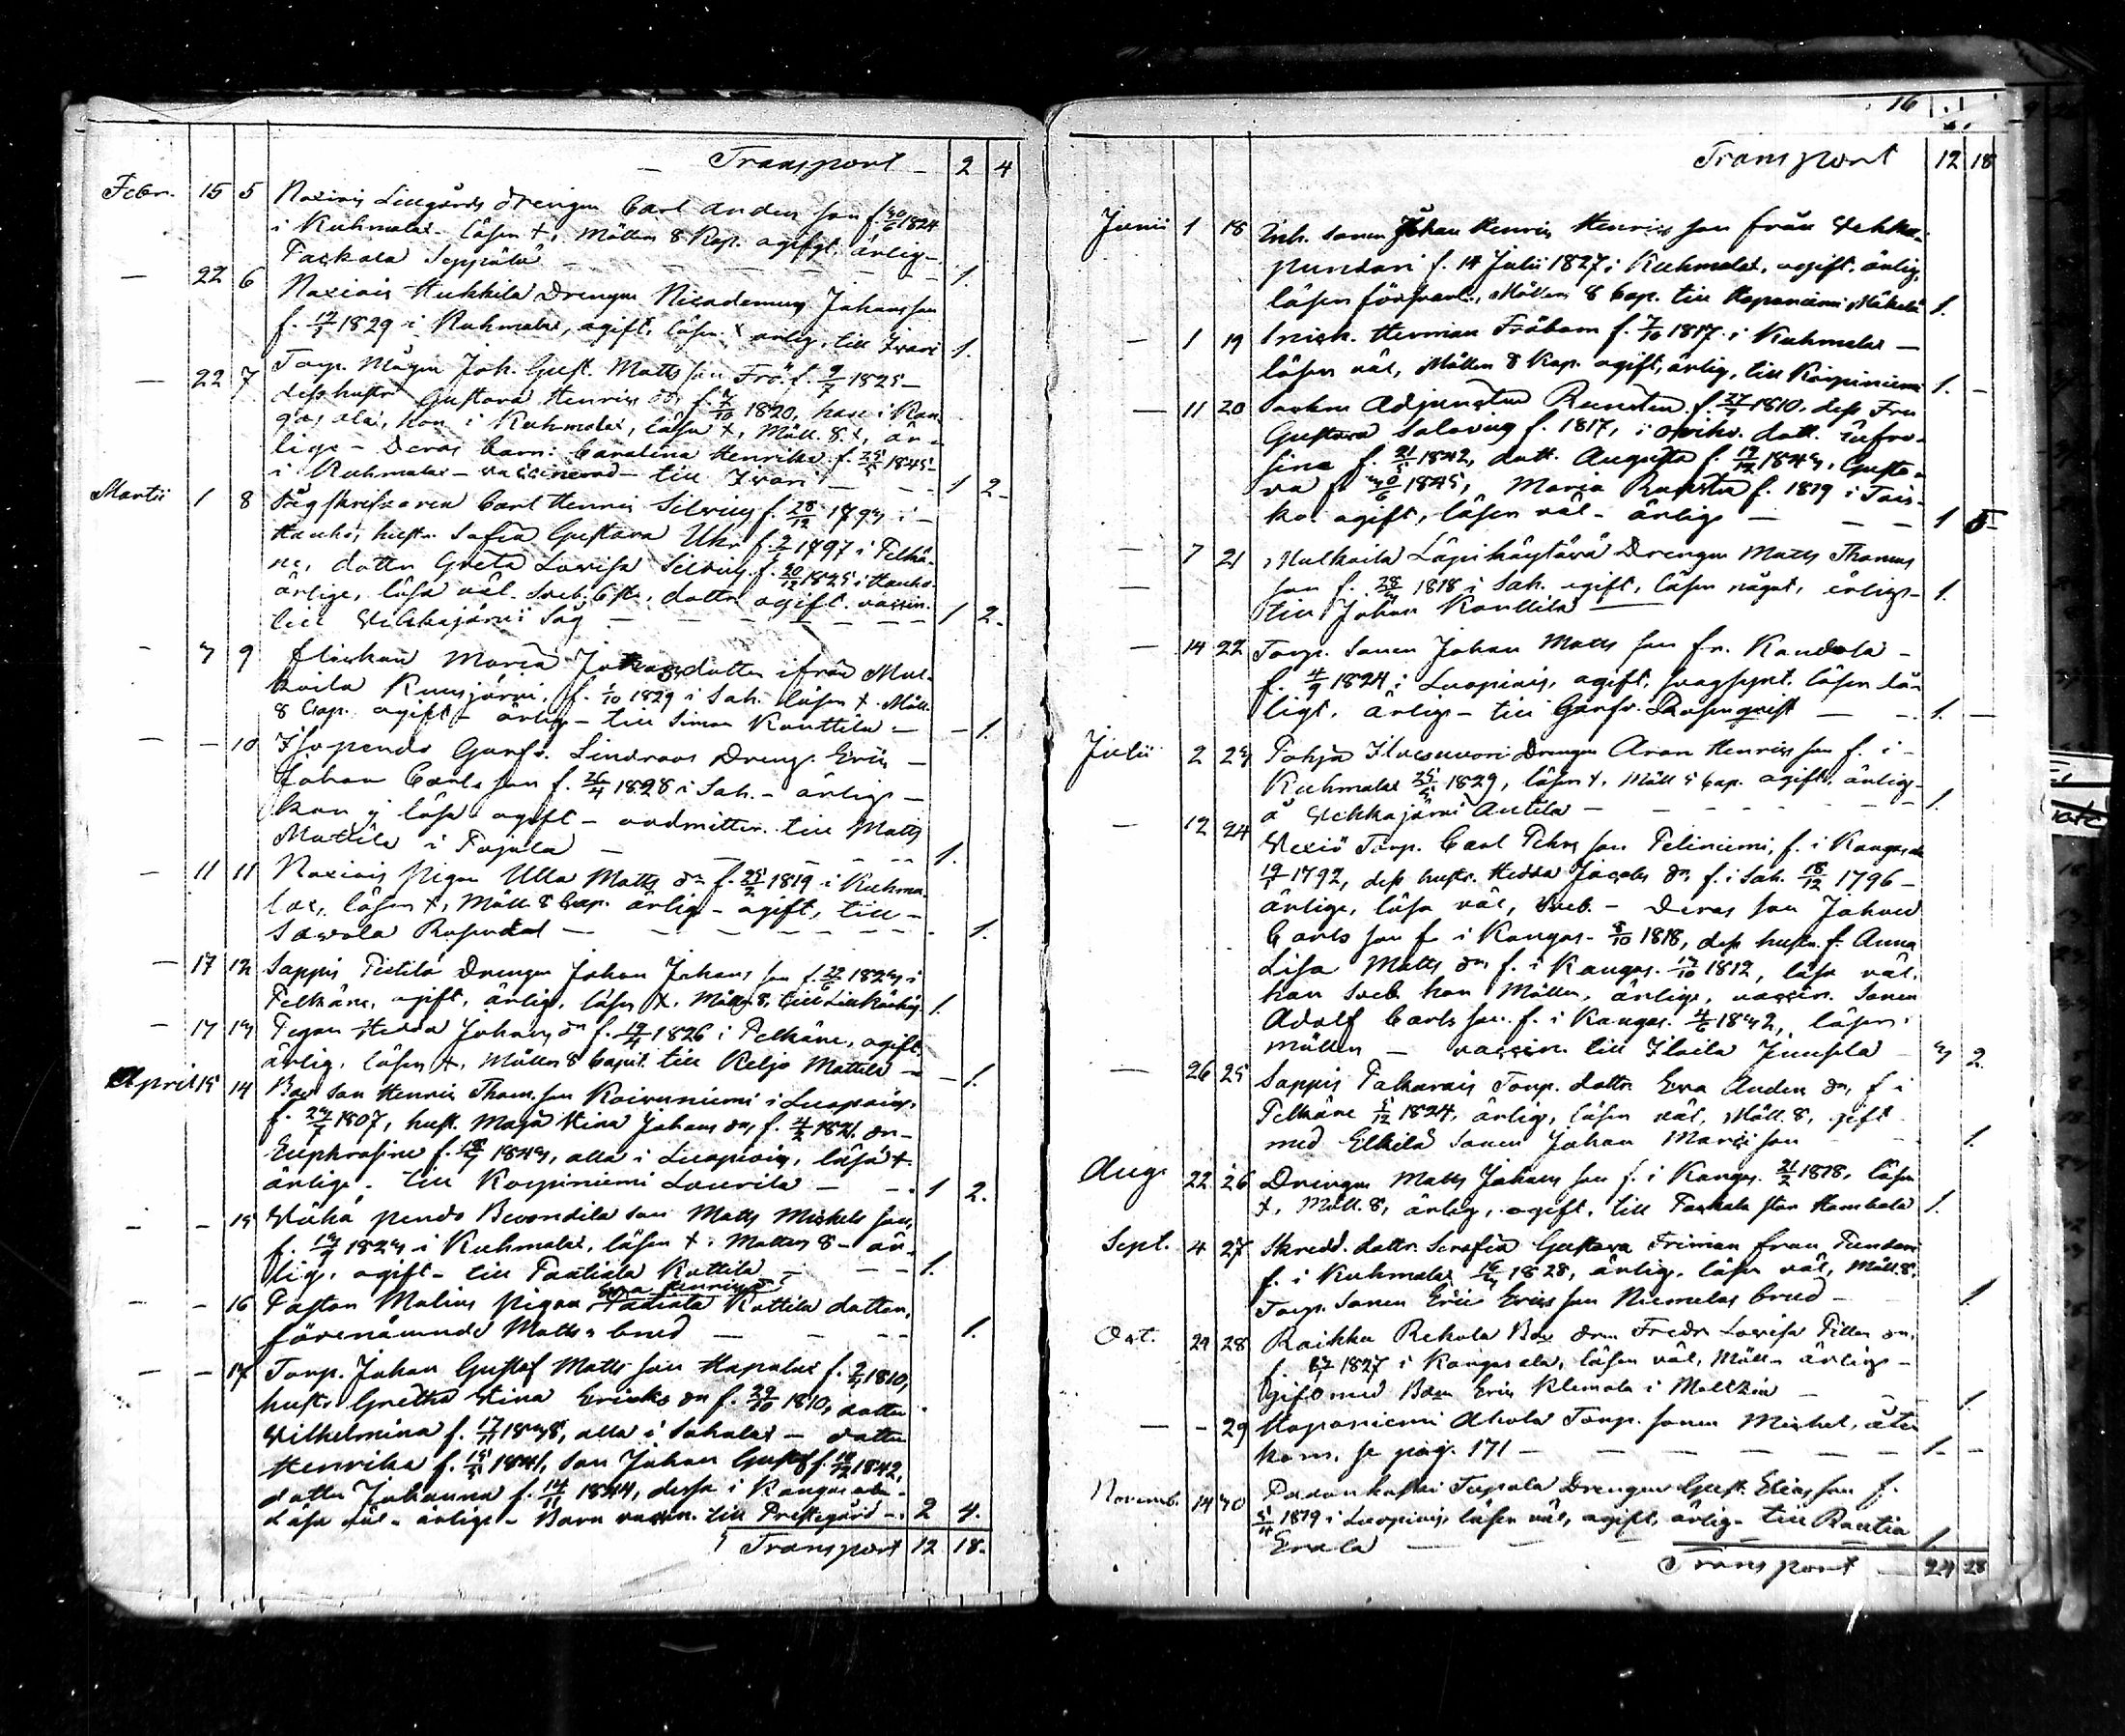 Transport - 2 4
Febr. 15 5 Naxiais Lillgårds drengen Carl Anders son f. 30/6 1824
i Kuhmalax läsen +, Möllers 8 Kap. ogift, ärlig -
Paskala Seppälä - 1.
- 22 6 Naxiais Hukkila Drengen Nicodemus Johansson
f. 19/7 1829 i Kuhmalax, ogift, läsen x ärlig, till Ivari 1.
- 22 7 Torp. Mågen Joh. Gust. Matts son Frö. f. 9/7 1825 -
dess hustru Gustava Henrics dr f. 7/10 1820, han i Kan
gasala, hon i Kuhmalax, läsa +, Möll. 8 +, är-
lige - Deras barn: Carolina Henrika f. 25/5 1845 -
i Kuhmalax - vaccinerad - till Ivari - 1 2 -
Martii 1 8 Sågskrifvaren Carl Henric Silvius f. 28/12 1793 i -
Hauho, hustr. Sofia Gustava Uhr f. 2/2 1797 i Pelkä-
ne, dotter Greta Lovisa Silvius f. 20/12 1825 i Hauho
ärlige, läsa väl. Sveb. dottr ogift. vaccin.
till Vehkajärvi Såg - 1 2 -
- 3 9 flickan Maria Johans dotter ifrån Mul-
koila Kuusjärvi, f. 1/10 1829 i Sah. läsen +. Möll.
8 Cap. ogift - ärlig - till Simon Kanttila - 1.
- - 10 Isopendo Gard. Lindroos Dreng. Eric -
Johan Carls son f. 26/4 1828 i Sah. - ärlig -
kan ej läsa. ogift - admitter. till Matts
Mattila i Pajula - 1.
- 11 11 Naxiais pigan Ulla Matts dr f. 25/2 1819 i Kuhma-
lax, läsen +, Möll. 8 Cap. ärlig - ogift, till -
Sawola Rosendal - 1.
- 17 12 Sappis Pietilä Drengen Johan Johans son f. 22/6 1823 i
Pelkäne, ogift, ärlig, läsen +, Möllrs 8, till 1.
- 17 13 Pigan Hedda Johans dr f. 19/4 1826 i Pelkäne, ogift,
ärlig, läsen +, Möllers 8 Caput. till Keljo Mattila - 1.
April 15 14 Bde son Henric Thom. son Koivuniemi i Luopiois,
f. 23/7 1807, hust. Maja Stina Johans dr, f. 4/2 1821. dr -
Euphrosine f. 1843, alla i Luopiois, läsa +.
ärlige - till Korpiniemi Laurila - 1 2.
- - 15 Wähä pendo son Matts Mickels son,
f. 1823 i Kuhmalax, läsen +. Möllers 8 - är-
lig, ogift - till Pentiala Kottila - 1.
Eva Henrica
- - 16 Pastor Malins pigan Kottila dotter,
förenämnde Matts's brud - 1.
- - 17 Torp. Johan Gustaf Matts son Hapalax f. 1810,
hustr. Gretha Stina Ericks dr f. 29/10 1810, dotter
Wilhelmina f. 17/11 1838, alla i Sahalax - dotter
Henrika f. 15/5 1841, son Johan Gustaf f. 12/12 1842,
dotter Johanna f. 14/11 1844, dessa i Kangasala -
Läsa väl - ärlige - Barn vaccin. till Prestegård - 2 4.
Transport 12 18.
16
Transport 12 18
Junii 1 18 Inh. sonen Johan Henric Henrics son från Vehka-
pundari f. 14 Julii 1827 i Kuhmalax, ogift, ärlig,
läsen försvarl., Möllers 8 Cap. till Haponiemi Mäkelä 1.
- 1 19 Inish. Herman Fröbom f. 7/10 1817 i Kuhmalax -
läsen väl, Möllers 8 Kap. ogift, ärlig, till Korpiniemi 1. -
- 11 20 Sockne Adjuncten Runsten f. 27/7 1810, dess Fru
Gustava Salovius f. 1817, i dott. Eufro-
sina f. 21/5 1842, dott. Augusta f. 19/12 1843, Gusta-
va f. 30/6 1845, Maria Runsten f. 1819 i Teis-
ko. ogift, läsen väl - ärlige - 1 5 -
- 7 21 Mulkoila Läpikäytävä Drengen Matts Thomas
- son f. 28/3 1818 i Sah. ogift, läsen något, ärlig - 1.
till Johan Kanttila
- 14 22 Torp. Sonen Johan Matts son fr. Kandola -
f. 4/9 1824 i Luopiois, ogift, svagsynt. läsen då-
ligt, ärlig - till Gardv. Rosenqvist - 1. -
Julii 2 23 Pohja Ilvesvuori Drengen Aron Henrics son f. i -
Kuhmalax 25/5 1829, läsen +, Möll 5 Cap. ogift, ärlig -
å Vehkajärvi Anttila - 1.
- 12 24 Vexiö Torp. Carl Pehrs son Peliniemi, f. i Kangasala
19/1 1792, dess hustr. Hedda Jacobs dr, f. i Sah. 18/12 1796 -
ärlige, läsa väl, Sveb. - Deras son Johan
Carls son f. i Kangas. 8/10 1818, dess hustr. f. Anna
Lisa Matts dr f. i Kangas. 17/10 1812, läsa väl,
han Sveb. hon Möller, ärlige, vaccin. Sonen
Adolf Carls son f. i Kangas. 4/6 1832, läsen.
möllers - vaccin. till Ilvila Junsela 3 2.
- 26 25 Sappis Pakarais Torp. dottr. Eva Anders dr, f. i
Pelkäne 5/12 1824, ärlig, läsen väl, Möll. 8, gift
med Elkilä Sonen Johan - 1.
Aug. 22 26 Drengen Matts Johans son f. i Kangas. 21/2 1818, läsen
+, Möll. 8, ärlig, ogift, till Paskala stor 1.
Sept. 4 27 Skredd. dottr. Serafia Gustava Friman från Pundari
f. i Kuhmalax 16/3 1828, ärlig, läsen väl, Möll. 8.
Torp. Sonen Eric Erics son Niemelas brud - 1
Oct. 29 28 Raikku Rekola Bde dr Fredr. Lovisa
f. 1827 i Kangasala, läsen väl, Möll - ärlig -
gift med Bden Eric Klemola i - 1
- - 29 Haponiemi Ahola Torp. sonen Mickel, åter
kom, se pag. 171 - 1. -
Novemb. 14 30 Tupala Drengen Gust. Elias son f.
5/4 1819 i Luopiois, läsen väl, ogift, ärlig - till Rautia
Erala - 1
Transport - 24 28